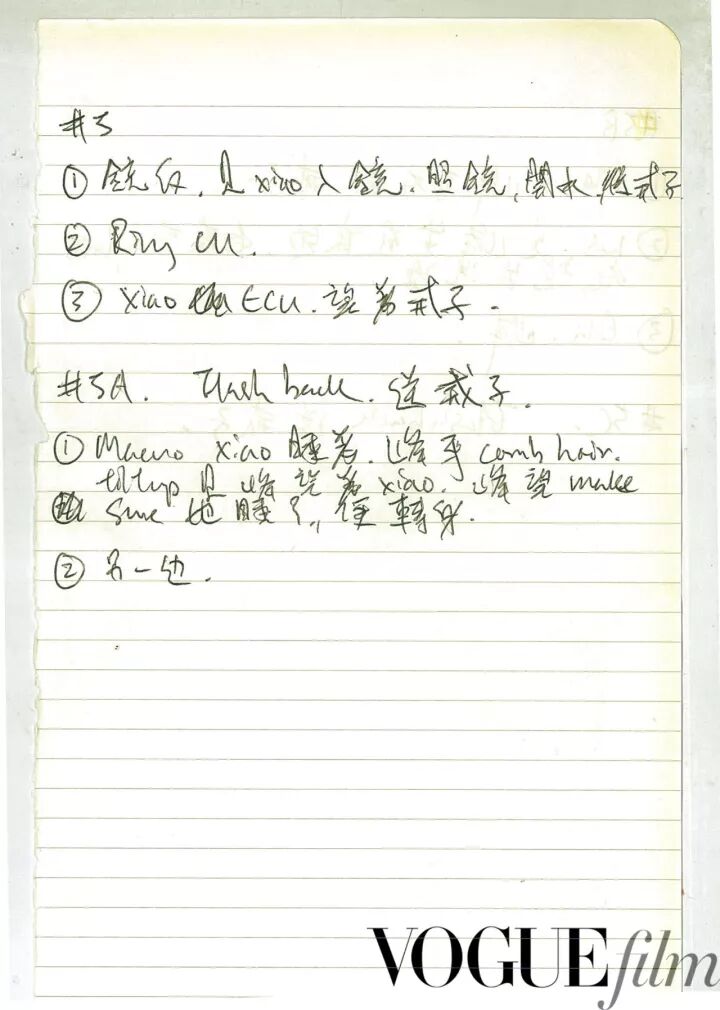 #5
① 鏡仔. 見 xiao 入鏡. 照鏡, 開水, 戒子
② Ring CU.
③ xiao ECU. 望著戒子.
#5A. Flash back. 送戒子.
① Macro xiao 睡著. 峰手 comb hair.
tiltup 見峰望著 xiao. 峰望 make
sure 她睡了, 便轉身.
② 另一边.
VOGUE film